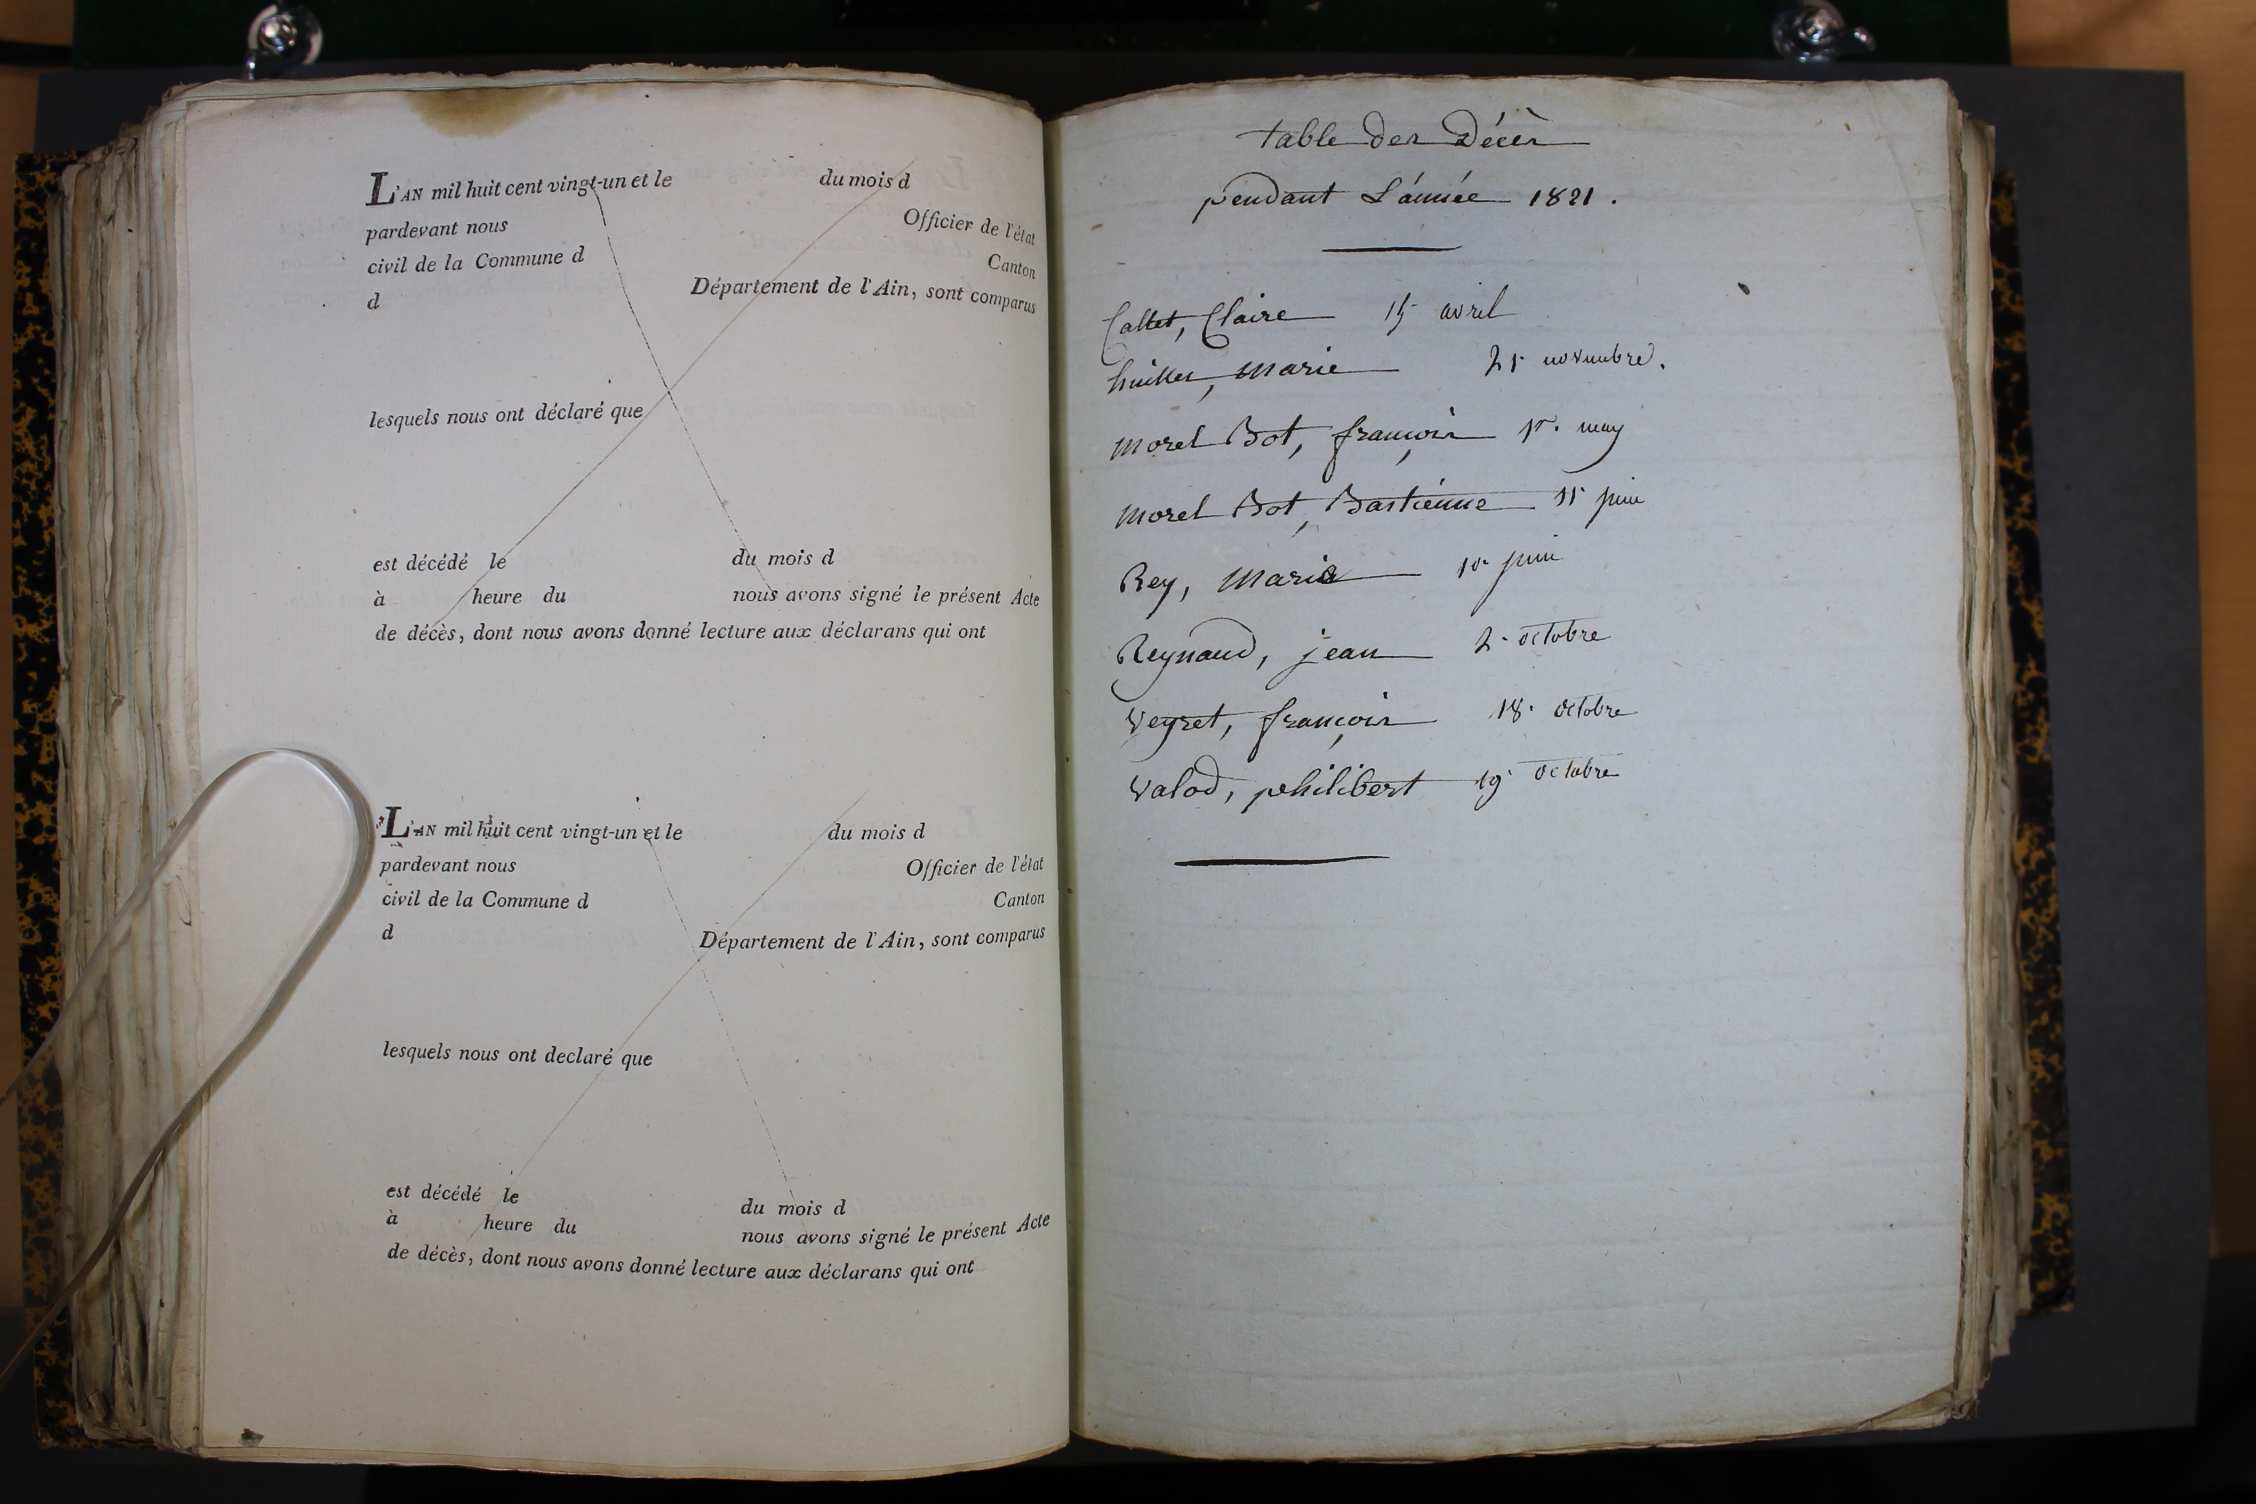 L'AN mil huit cent vingt-un et le du mois d
pardevant nous Officier de l'état
civil de la Commune d Canton
d Département de l'Ain, sont comparus
lesquels nous ont déclaré que
est décédé le du mois d
à heure du nous avons signé le présent Acte
de décès, dont nous avons donné lecture aux déclarans qui ont
L'AN mil huit cent vingt-un et le du mois d
pardevant nous Officier de l'état
civil de la Commune d Canton
d Département de l'Ain, sont comparus
lesquels nous ont declaré que
est décédé le du mois d
à heure du nous avons signé le présent Acte
de décès, dont nous avons donné lecture aux déclarans qui ont
table des Décès
pendant L'année 1821.
Callet, Claire 15 avril
Marie novembre.
Morel Bot, françois 1er. may
Morel Bot, Bastiénne 11 juin
Rey, Marie juin
Reynaud, jean 2. octobre
Veyret, françois 18. octobre
Valod, philibert 19 octobre